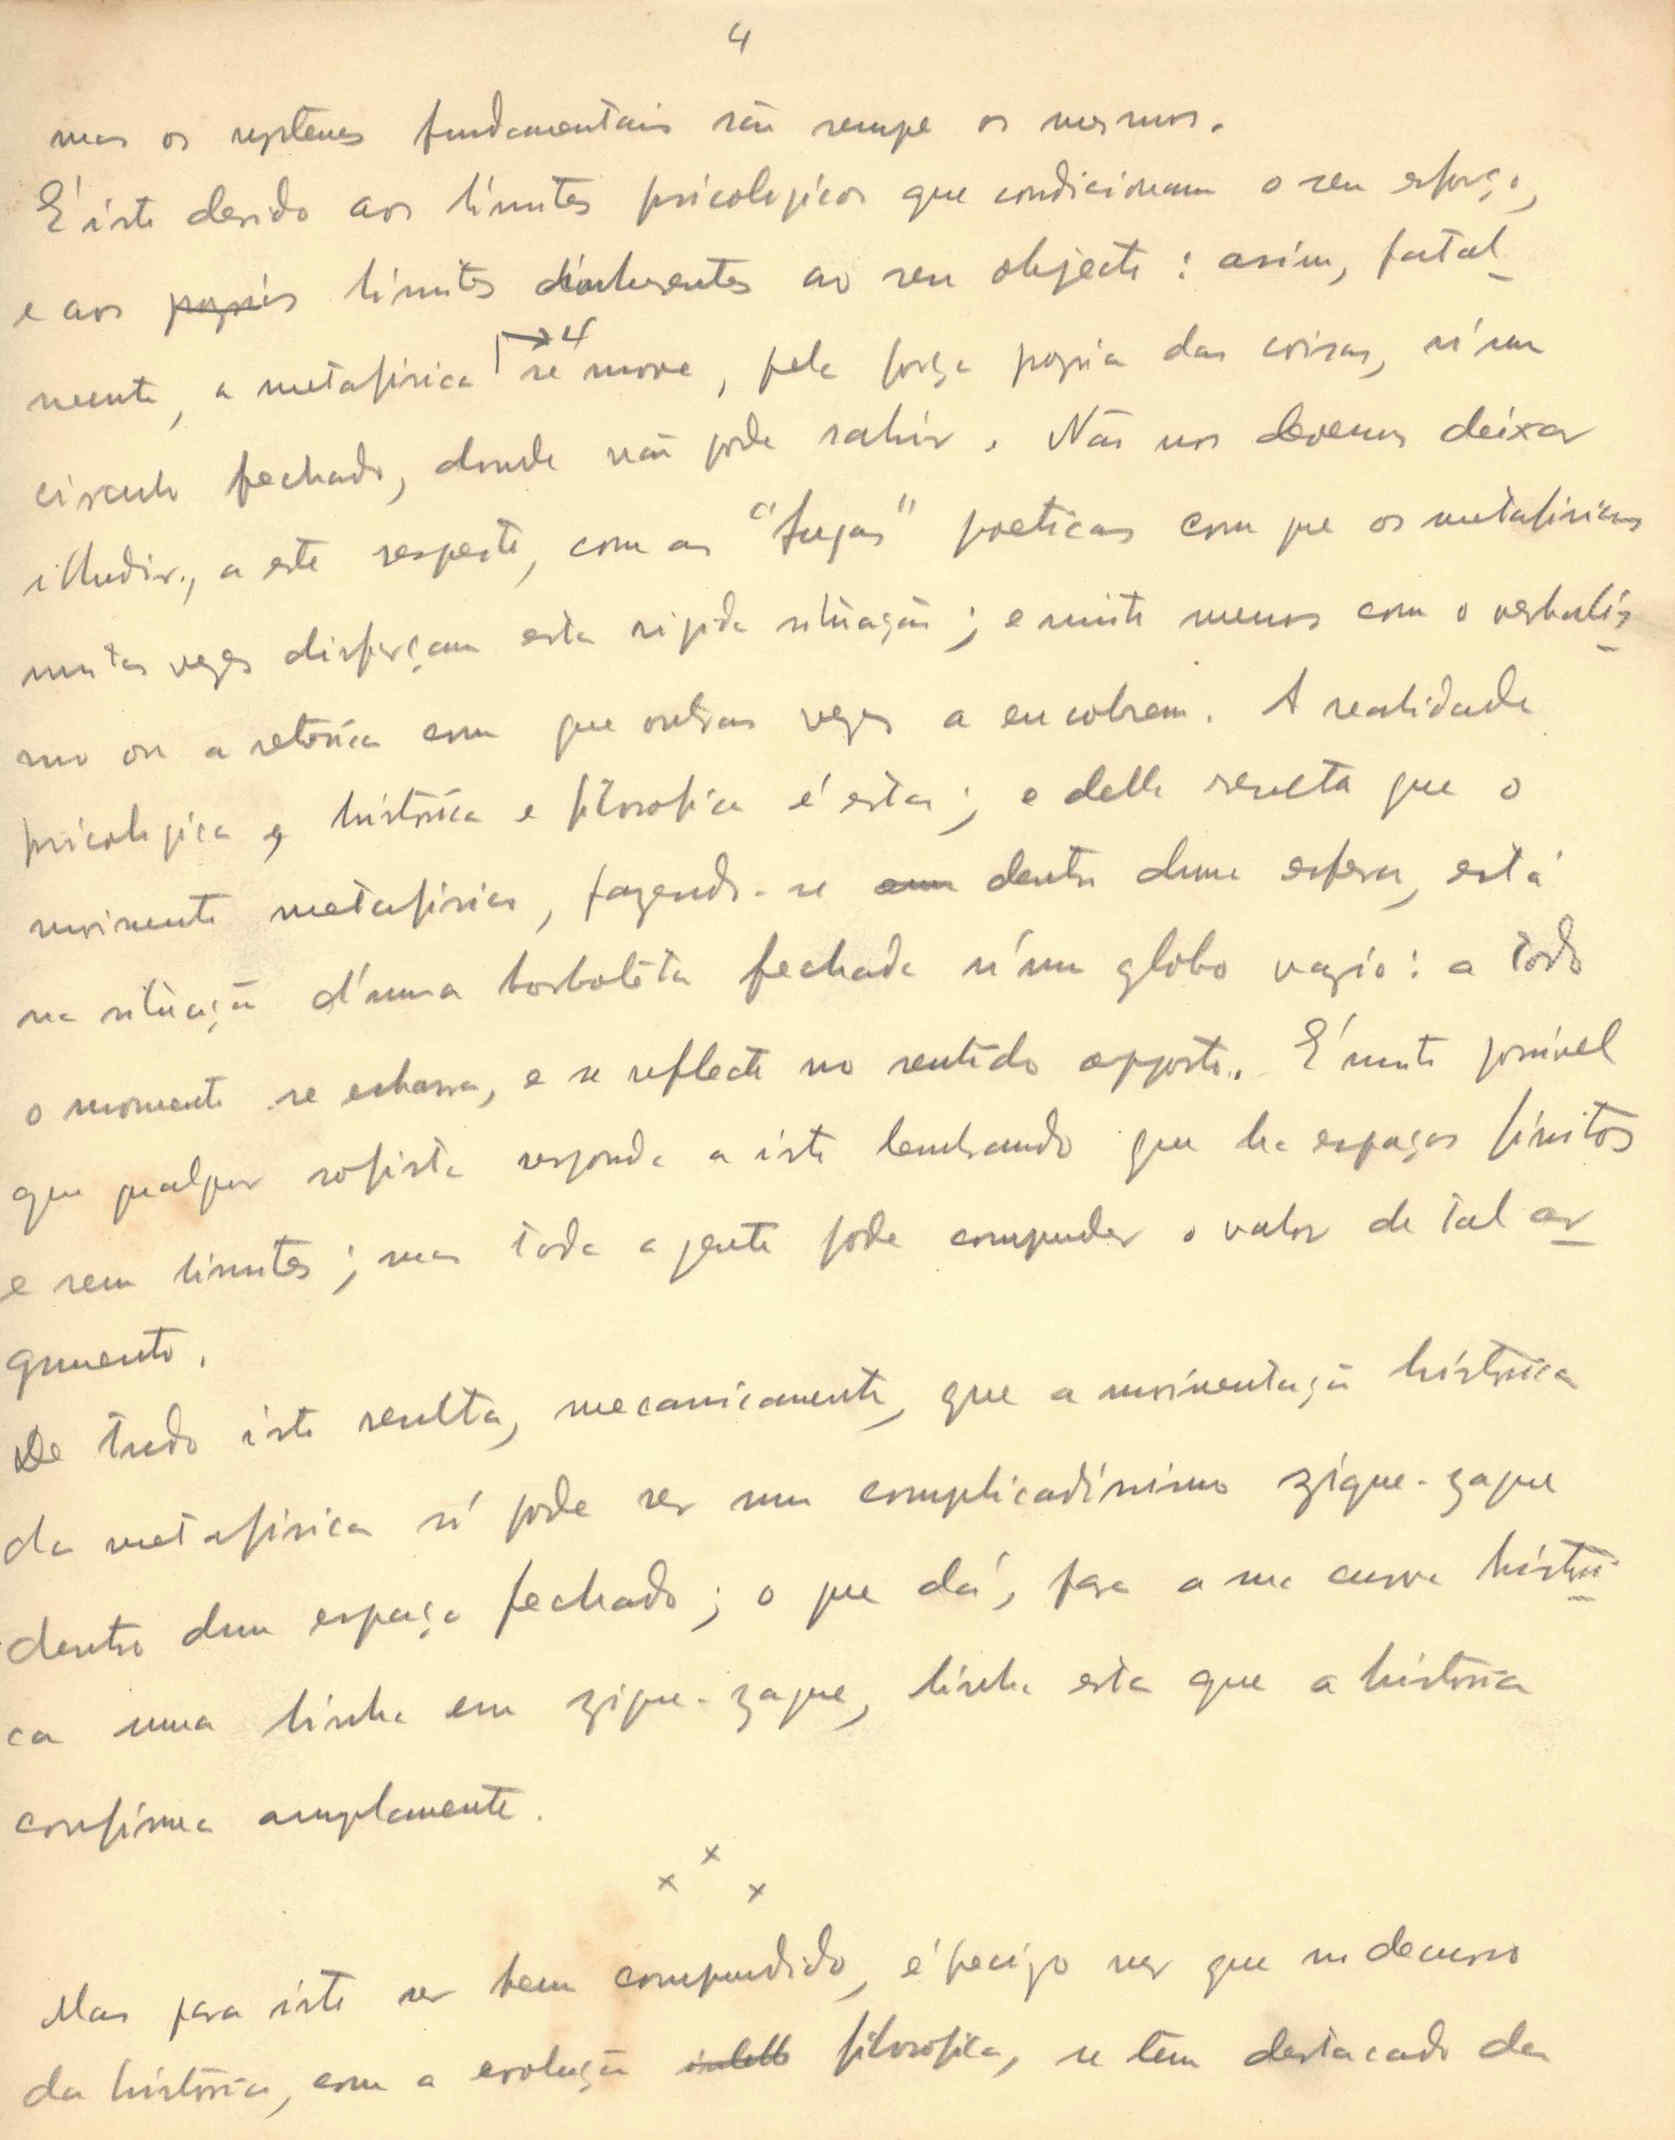 4
mas os systemas fundamentais são sempre os mesmos.
É isto devido aos limites psicologicos que condicionam o seu esforço,
e aos proprios limites inherentes ao seu objecto: assim, fatal-
mente, a metafisica se move, pela força propria das coisas, n'um
circulo fechado, donde não pode sahir. Não nos devemos deixar
illudir, a este respeito, com as "fugas" poeticas com que os metafisicos
muitas vezes disfarçam esta rigida situação; e muito menos com o verbalis-
mo ou a retórica com que outras vezes a encobrem. A realidade
psicologica, histórica e filosofica é esta; e della resulta que o
movimento metafisico, fazendo-se dentro duma esfera, está
na situação d'uma borboleta fechada n'um globo vazio: a todo
o momento se esbarra, e se reflecte no sentido opposto. É muito possivel
que qualquer sofista responda a isto lembrando que ha espaços finitos
e sem limites; mas toda a gente pode comprehender o valor de tal ar-
gumento.
De tudo isto resulta, mecanicamente, que a movimentação histórica
da metafisica só pode ser um complicadissimo zigue-zague
dentro dum espaço fechado; o que dá, para a sua curva histori-
ca uma linha em zigue-zague, linha esta que a história
confirma amplamente.
x x x
Mas para isto ser bem comprehendido, é preciso ver que no decurso
da história, com a evolução filosofica, se tem destacado da